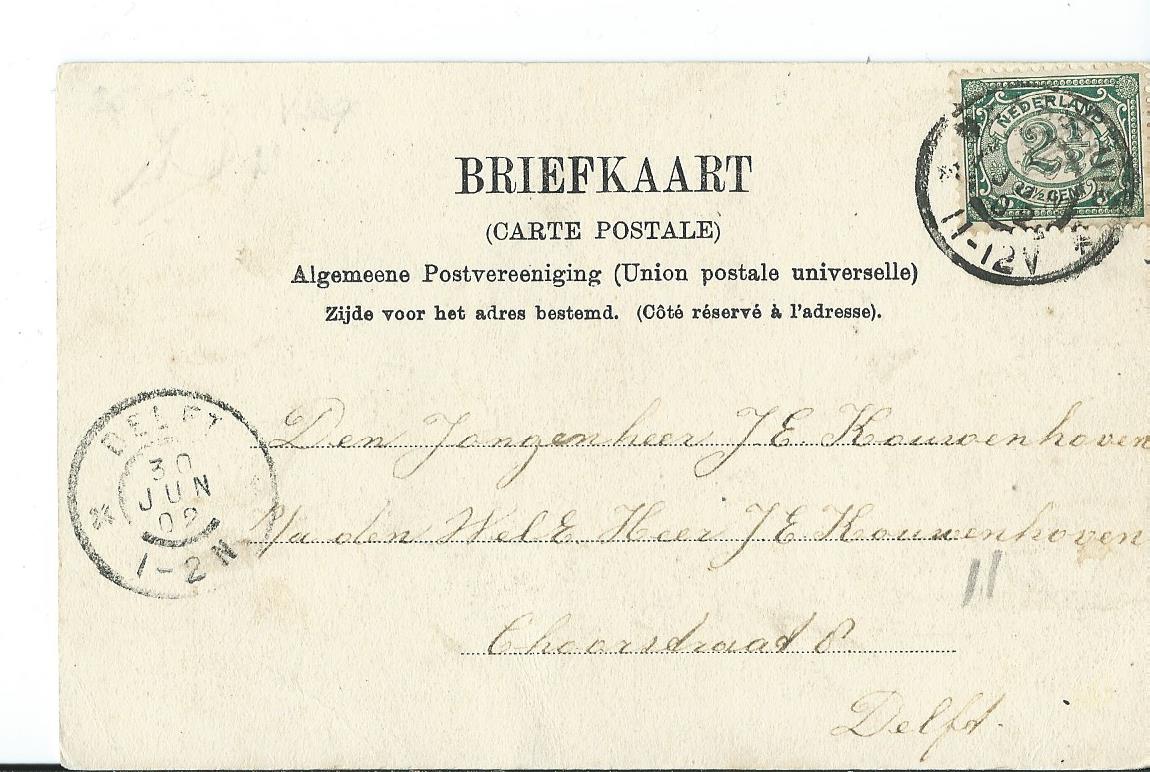 NEDERLAND
2½
2½ CENT
11-12V
BRIEFKAART
(CARTE POSTALE)
Algemeene Postvereeniging (Union postale universelle)
Zijde voor het adres bestemd. (Côté réservé à l'adresse).
DELFT
30
JUN
02
1-2N
Den Jongenheer J E. Kouwenhoven
P/a den Wel E. Heer J E Kouwenhoven
Choorstraat 8.
Delft.
11